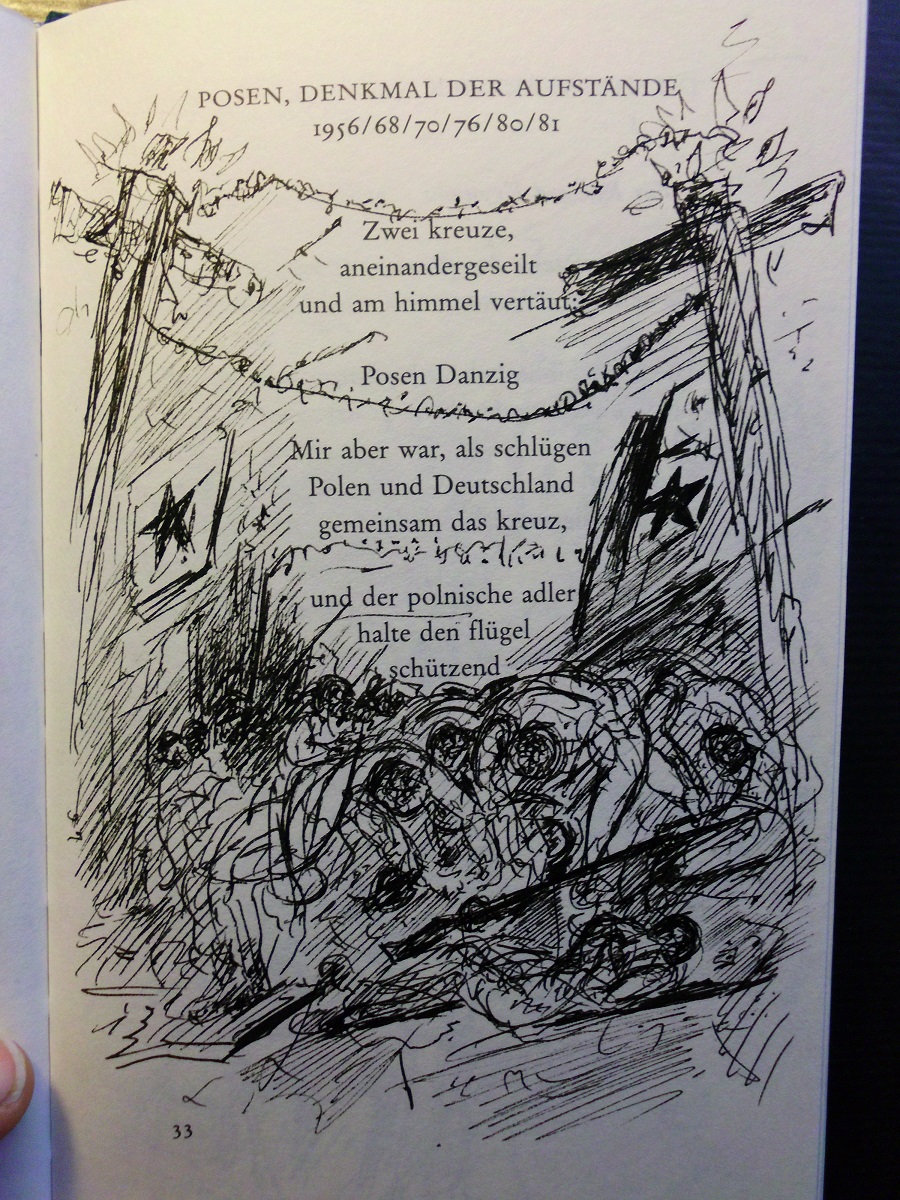 POSEN, DENKMAL DER AUFSTÄNDE
1956/68/70/76/80/81
Zwei kreuze,
aneinandergeseilt
und am himmel vertäut:
Posen Danzig
Mir aber war, als schlügen
Polen und Deutschland
gemeinsam das kreuz,
und der polnische adler
halte den flügel
schützend
33